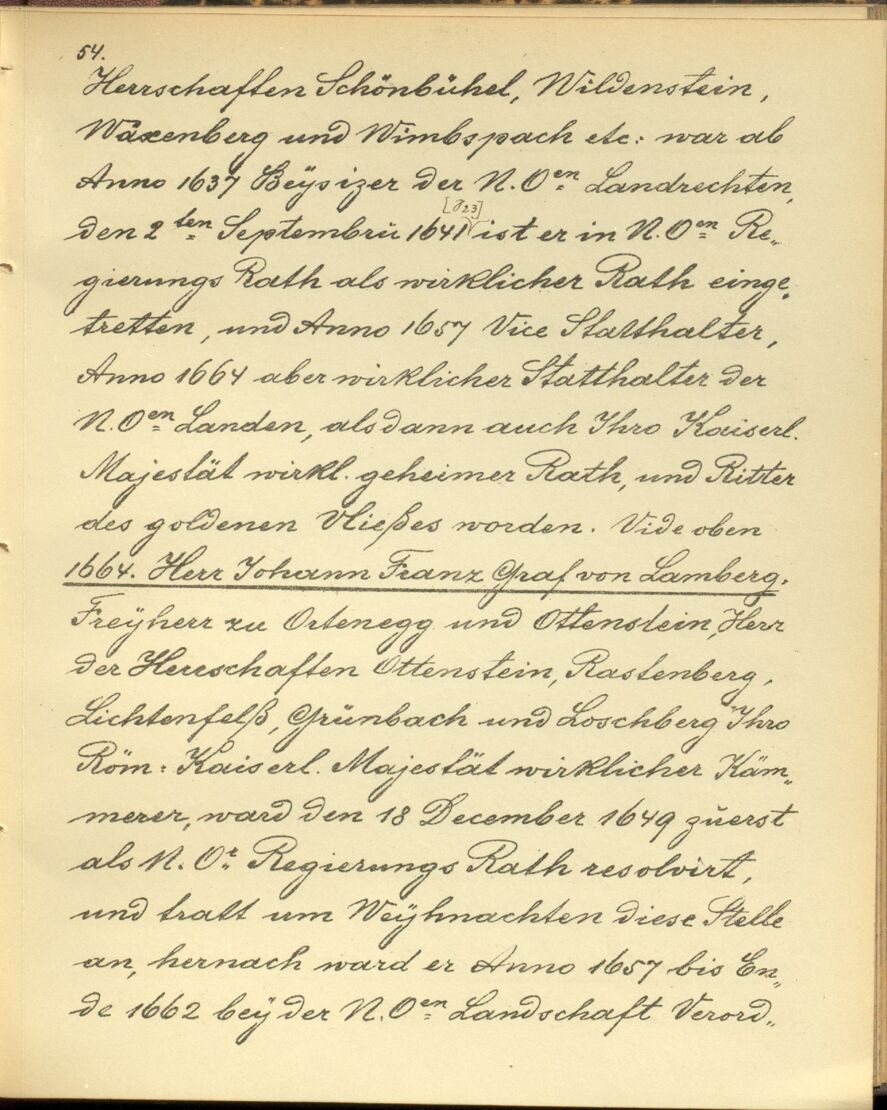 54.
Herrschaften Schönbühel, Wildenstein,
Wäxenberg und Wimbspach etc: war ab
Anno 1637 Beÿsizer der N.Oen Landrechten,
den 2ten Septembrii 1641 ist er in N.Oen Re„
gierungs Rath als wirklicher Rath einge„
tretten, und Anno 1657 Vice Statthalter,
Anno 1664 aber wirklicher Statthalter der
N.Oen Landen, alsdann auch Ihro Kaiserl.
Majestät wirkl. geheimer Rath, und Ritter
des goldenen Vließes worden. Vide oben
1664. Herr Johann Franz Graf von Lamberg.
Freÿherr zu Ortenegg und Ottenstein, Herr
der Herrschaften Ottenstein, Rastenberg,
Lichtenfelß, Grünbach und Loschberg Ihro
Röm: Kaiserl. Majestät wirklicher Käm„
merer, ward den 18 December 1649 zuerst
als N.Or Regierungs Rath resolvirt,
und tratt um Weÿhnachten diese Stelle
an, hernach ward er Anno 1657 bis En„
de 1662 beÿ der N.Oen Landschaft Verord„